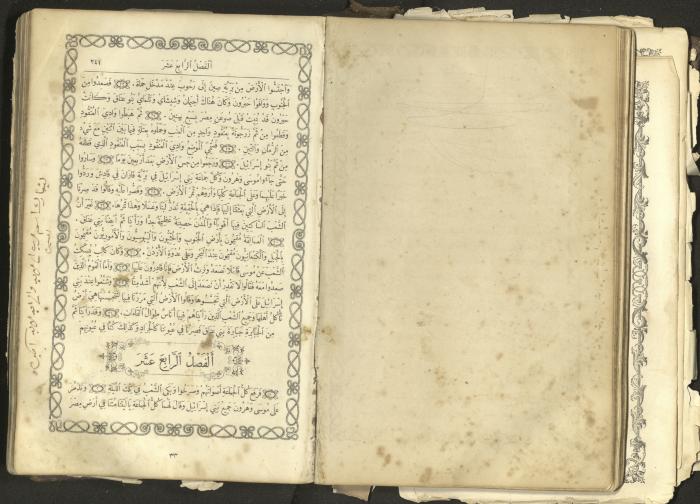 ٱلْفَصْلُ ٱلرَّابِعَ عَشَرَ ٢٤٧
وَٱجْتَسُّوا ٱلْأَرْضَ مِنْ بَرِّيَّةِ صِينَ إِلَى رَحُوبَ عِنْدَ مَدْخَلِ حَمَاةَ. فَصَعِدُوا مِنَ
ٱلْجَنُوبِ وَوَافَوْا حَبْرُونَ وَكَانَ هُنَاكَ أَحِيمَانُ وَشِيشَايُ وَتَلْمَايُ بَنُو عَنَاقَ وَكَانَتْ
حَبْرُونُ قَدْ بُنِيَتْ قَبْلَ صُوعَنِ مِصْرَ بِسَبْعِ سِنِينَ. ثُمَّ هَبَطُوا وَادِيَ ٱلْعُنْقُودِ
وَقَطَعُوا مِنْ ثَمَّ زَرَجُونَةً بِعُنْقُودٍ وَاحِدٍ مِنَ ٱلْعِنَبِ وَحَمَلُوهُ بِعَتَلَةٍ فِيمَا بَيْنَ ٱثْنَيْنِ مَعَ شَيْءٍ
مِنَ ٱلرُّمَّانِ وَٱلتِّينِ. فَسُمِّيَ ٱلْمَوْضِعُ وَادِيَ ٱلْعُنْقُودِ بِسَبَبِ ٱلْعُنْقُودِ ٱلَّذِي قَطَعَهُ
مِنْ ثَمَّ بَنُو إِسْرَائِيلَ. وَرَجَعُوا مِنْ جَسِّ ٱلْأَرْضِ بَعْدَ أَرْبَعِينَ يَوْمًا وَسَارُوا
حَتَّى جَآءُوا مُوسَى وَهٰرُونَ وَكُلَّ جَمَاعَةِ بَنِي إِسْرَائِيلَ فِي بَرِّيَّةِ فَارَانَ فِي قَادِيشَ وَرَدُّوا
عَلَيْهِمَا وَعَلَى ٱلْجَمَاعَةِ كُلِّهَا وَأَرَوْهُمْ ثَمَرَ ٱلْأَرْضِ. وَقَصُّوا عَلَيْهِ وَقَالُوا قَدْ صِرْنَا
إِلَى ٱلْأَرْضِ ٱلَّتِي بَعَثْتَنَا إِلَيْهَا فَإِذَا هِيَ بِٱلْحَقِيقَةِ تَدُرُّ لَبَنًا وَعَسَلًا وَهٰذَا ثَمَرُهَا. غَيْرَ أَنَّ
ٱلشَّعْبَ ٱلسَّاكِنِينَ فِيهَا أَقْوِيَآءُ وَٱلْمُدُنَ حَصِينَةٌ عَظِيمَةٌ جِدًّا وَرَأَيْنَا ثَمَّ أَيْضًا بَنِي عَنَاقَ.
ٱلْعَمَالِقَةُ مُقِيمُونَ بِأَرْضِ ٱلْجَنُوبِ وَٱلْحِثِّيُّونَ وَٱلْيَبُوسِيُّونَ وَٱلْأَمُورِيُّونَ مُقِيمُونَ
بِٱلْجَبَلِ وَٱلْكَنْعَانِيُّونَ مُقِيمُونَ عِنْدَ ٱلْبَحْرِ وَعَلَى عُدْوَةِ ٱلْأُرْدُنِّ. وَكَانَ كَالِبُ يُسَكِّتُ
ٱلشَّعْبَ عَنْ مُوسَى قَائِلًا نَصْعَدُ وَنَرِثُ ٱلْأَرْضَ فَإِنَّا قَادِرُونَ عَلَيْهَا وَأَمَّا ٱلْقَوْمُ ٱلَّذِينَ
صَعِدُوا مَعَهُ فَقَالُوا لَا نَقْدِرُ أَنْ نَصْعَدَ إِلَى ٱلشَّعْبِ لِأَنَّهُمْ أَشَدُّ مِنَّا وَشَنَّعُوا عِنْدَ بَنِي
إِسْرَائِيلَ عَلَى ٱلْأَرْضِ ٱلَّتِي تَجَسَّسُوهَا وَقَالُوا ٱلْأَرْضُ ٱلَّتِي مَرَرْنَا فِيهَا لِنَجْتَسَّهَا هِيَ أَرْضٌ
تَأْكُلُ أَهْلَهَا وَجَمِيعُ ٱلشَّعْبِ ٱلَّذِينَ رَأَيْنَاهُمْ فِيهَا أُنَاسٌ طِوَالُ ٱلْقَامَاتِ. وَقَدْ رَأَيْنَا ثَمَّ
مِنَ ٱلْجَبَابِرَةِ جَبَابِرَةَ بَنِي عَنَاقَ فَصِرْنَا فِي عُيُونِنَا كَٱلْجَرَادِ وَكَذٰلِكَ كُنَّا فِي عُيُونِهِمْ
أَلْفَصْلُ ٱلرَّابِعَ عَشَرَ
فَرَفَعَ كُلُّ ٱلْجَمَاعَةِ أَصْوَاتَهُمْ وَصَرَخُوا وَبَكَى ٱلشَّعْبُ فِي تِلْكَ ٱللَّيْلَةِ وَتَذَمَّرَ
عَلَى مُوسَى وَهٰرُونَ جَمِيعُ بَنِي إِسْرَائِيلَ وَقَالَ لَهُمَا كُلُّ ٱلْجَمَاعَةِ يَا لَيْتَنَا مُتْنَا فِي أَرْضِ مِصْرَ
٣٣